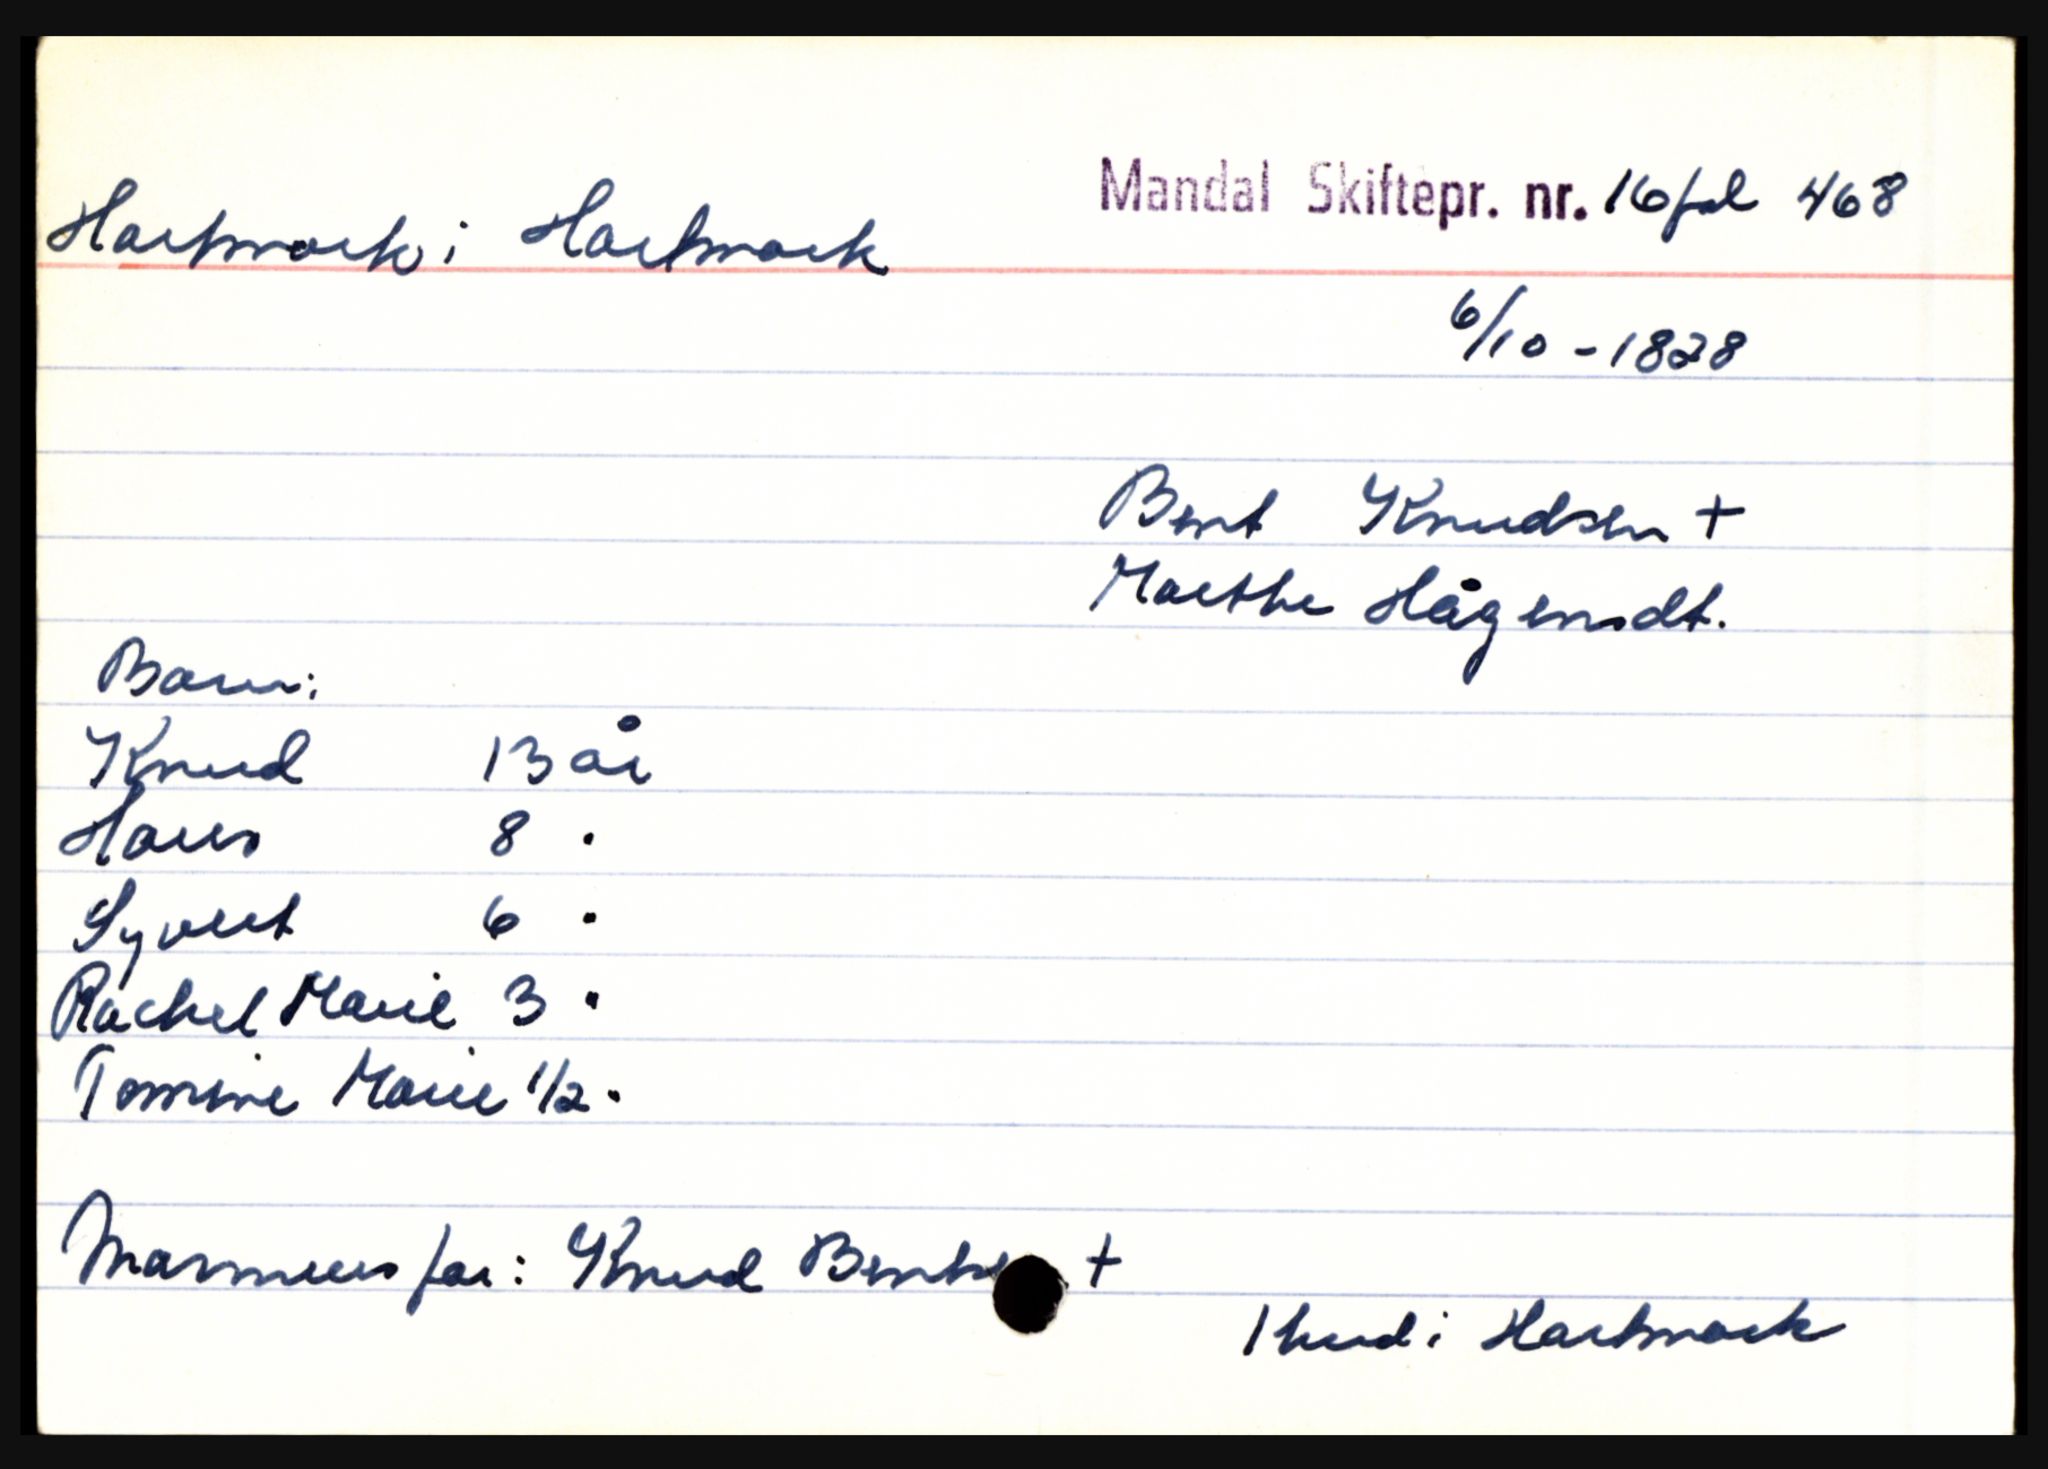 Mandal Skiftepr. nr. 16 fol 468
Hartmark i Hartmark
6/10 - 1828
Bent Knudsen +
Marthe Hågensdt.
Barn:
Knud 13 år
Hans 8 "
Syvert 6 "
Rachel Marie 3 "
Tomine Marie 1/2 "
Mannens far: Knud Bents +
1 hud i Hartmark